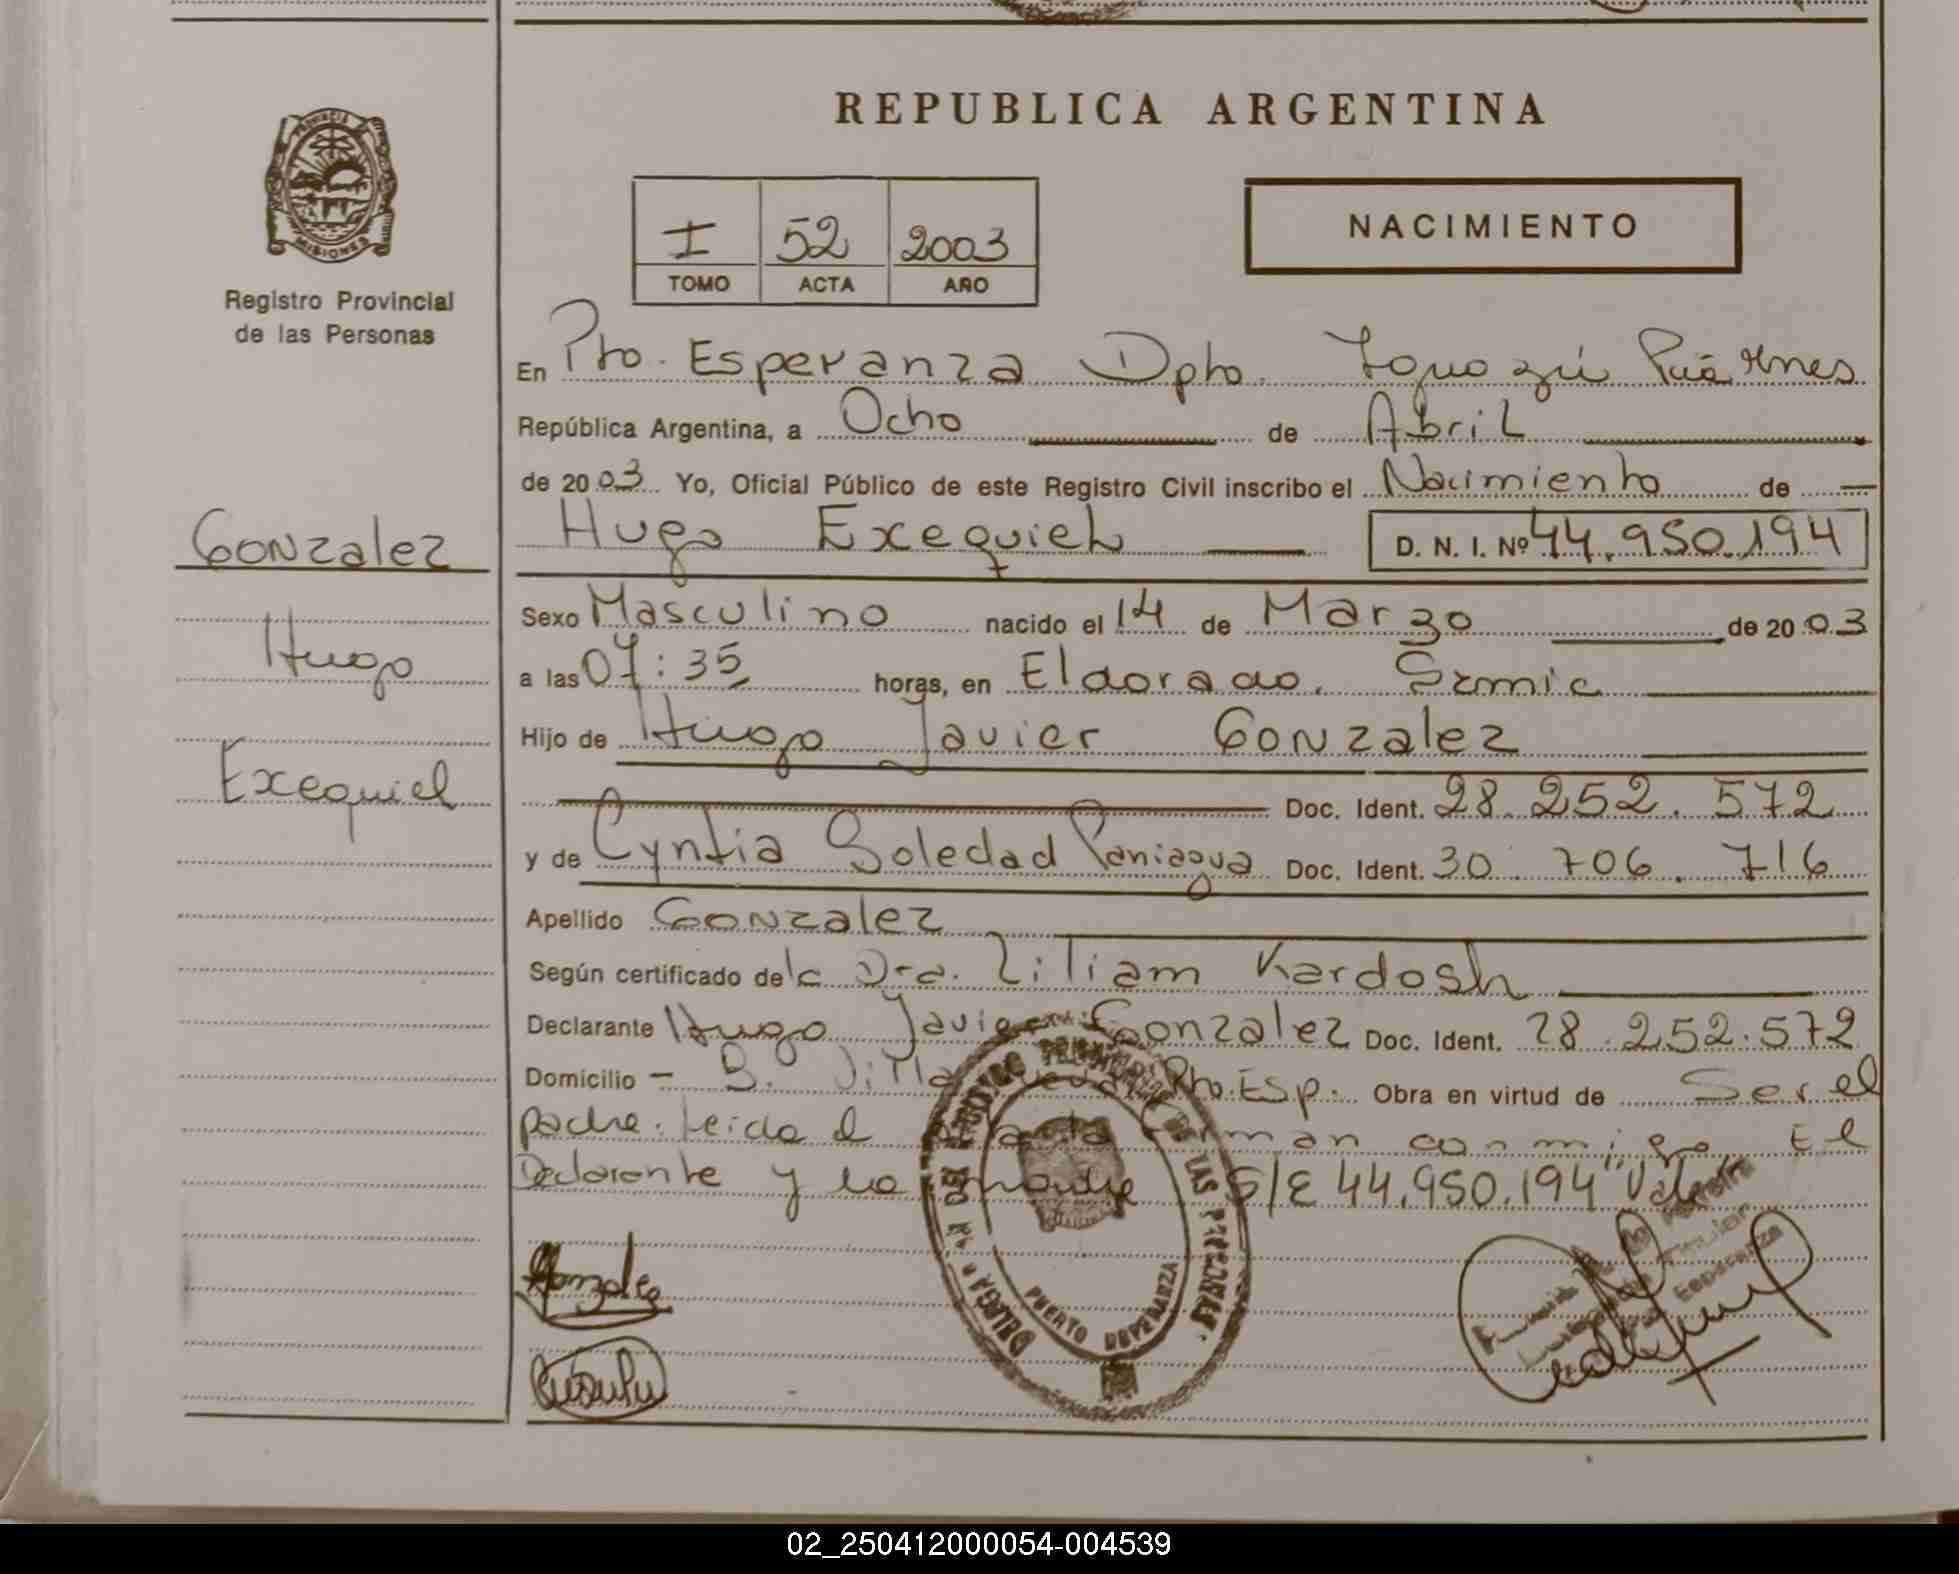 PROVINCIA DE
MISIONES
Registro Provincial
de las Personas
Gonzalez
Hugo
Exequiel
REPUBLICA ARGENTINA
I 52 2003
TOMO ACTA AÑO
NACIMIENTO
En Pto. Esperanza Dpto. Iguazú Pcia Mnes
República Argentina, a Ocho de Abril
de 2003 Yo, Oficial Público de este Registro Civil inscribo el Nacimiento de
Hugo Exequiel D. N. I. Nº 44.950.194
Sexo Masculino nacido el 14 de Marzo de 2003
a las 07:35 horas, en Eldorado. Samic
Hijo de Hugo Javier Gonzalez
Doc. Ident. 28.252.572
y de Cyntia Soledad Paniagua Doc. Ident. 30.706.716
Apellido Gonzalez
Según certificado de la Dra. Liliam Kardosh
Declarante Hugo Javier Gonzalez Doc. Ident. 28.252.572
Domicilio B. Villa Pto. Esp. Obra en virtud de Ser el
padre. Leida el Acta firman conmigo El
Declarante y la madre S/E 44.950.194 "Vale
Gonzalez
DE LAS PERSONAS
PUERTO ESPERANZA
02_250412000054-004539